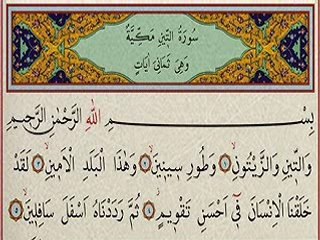 سُورَةُ التِّينِ مَكِّيَّةٌ
وَهِيَ ثَمَانِي اٰيَاتٍ
بِسْمِ اللّٰهِ الرَّحْمٰنِ الرَّحِيمِ
وَالتّٖينِ وَالزَّيْتُونِۙ ﴿١﴾ وَطُورِ سٖينٖينَۙ ﴿٢﴾ وَهٰذَا الْبَلَدِ الْاَمٖينِۙ ﴿٣﴾ لَقَدْ
خَلَقْنَا الْاِنْسَانَ فٖٓى اَحْسَنِ تَقْوٖيمٍۘ ﴿٤﴾ ثُمَّ رَدَدْنَاهُ اَسْفَلَ سَافِلٖينَۙ ﴿٥﴾